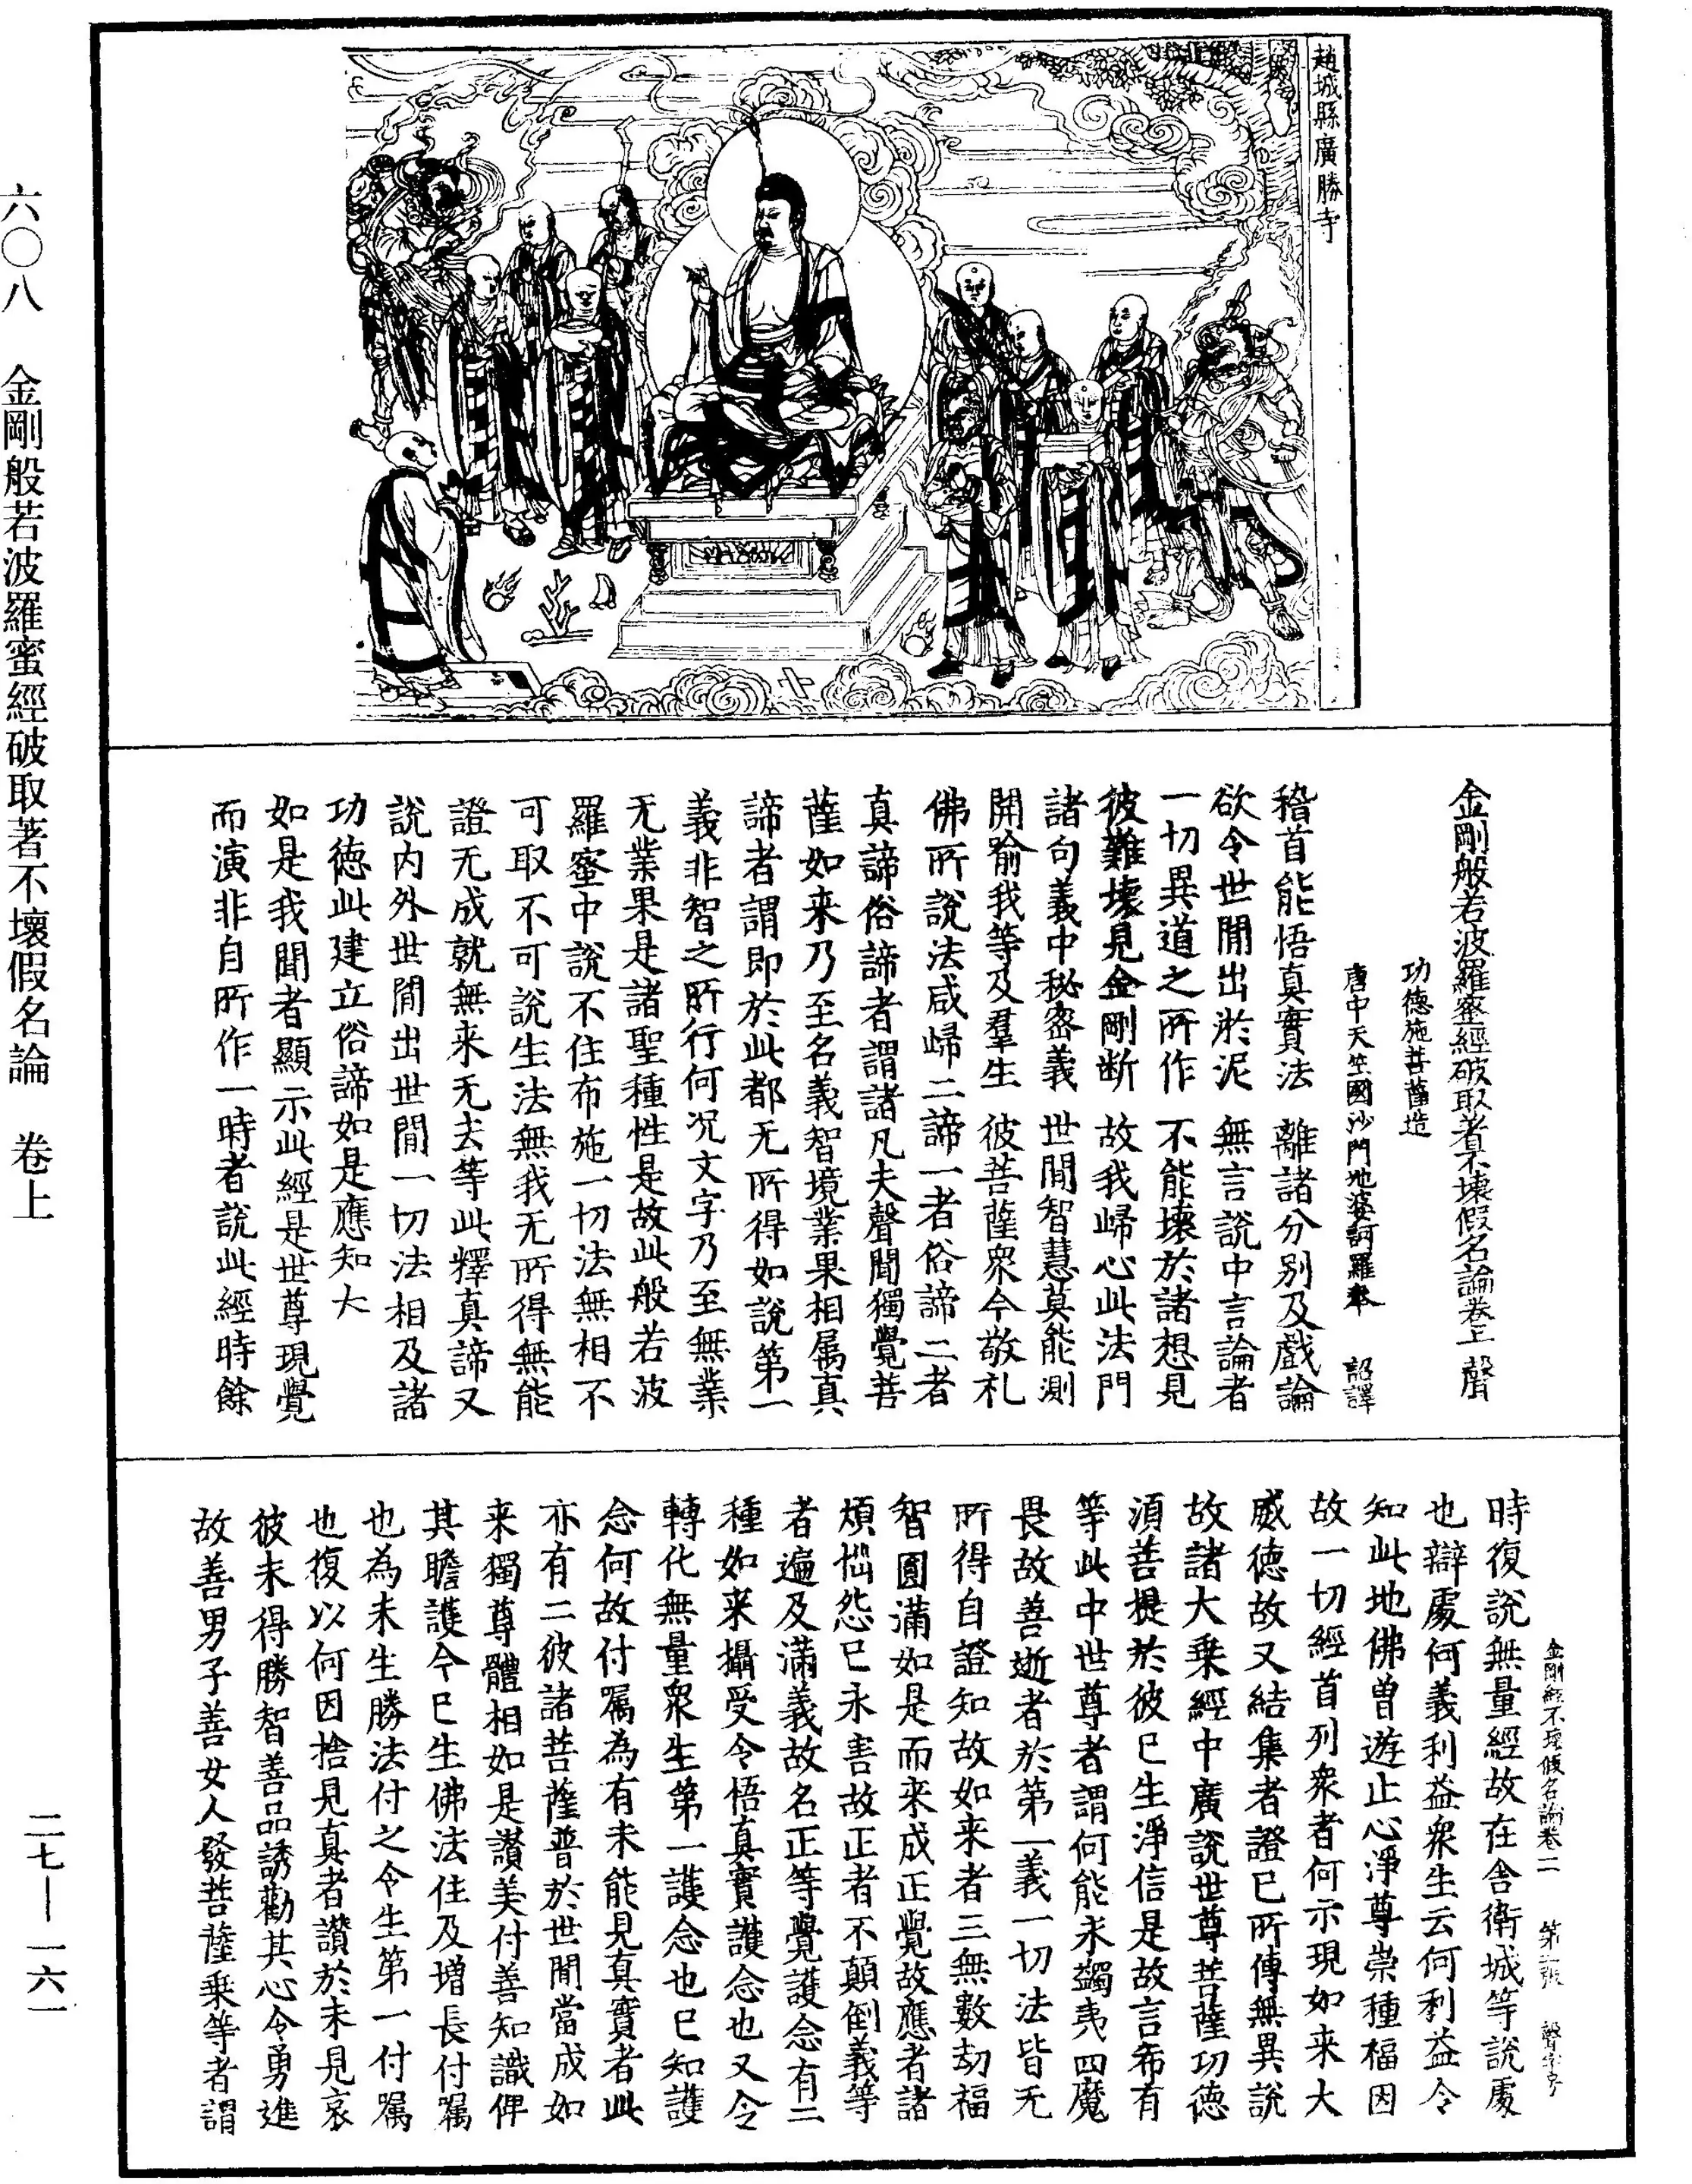 趙城縣廣勝寺
金剛般若波羅蜜經破取著不壞假名論卷上 聲
功德施菩薩造
唐中天竺國沙門地婆訶羅奉 詔譯
稽首能悟真實法 離諸分別及戲論
欲令世間出淤泥 無言說中言論者
一切異道之所作 不能壞於諸想見
彼難壞見金剛断 故我歸心此法門
諸句義中秘密義 世間智慧莫能測
開喻我等及羣生 彼菩薩衆今敬礼
佛所說法咸歸二諦一者俗諦二者
真諦俗諦者謂諸凡夫聲聞獨覺菩
薩如来乃至名義智境業果相属真
諦者謂即於此都无所得如說第一
義非智之所行何况文字乃至無業
无業果是諸聖種性是故此般若波
羅蜜中說不住布施一切法無相不
可取不可說生法無我无所得無能
證无成就無来无去等此釋真諦又
說内外世間出世間一切法相及諸
功德此建立俗諦如是應知大
如是我聞者顯示此經是世尊現覺
而演非自所作一時者說此經時餘
金剛經不壞假名論卷二 第二張 聲字号
時復說無量經故在舍衛城等說處
也辯處何義利益衆生云何利益令
知此地佛曾遊止心淨尊崇種福因
故一切經首列衆者何示現如来大
威德故又結集者證已所傳無異說
故諸大乘經中廣說世尊菩薩功德
湏菩提於彼已生淨信是故言希有
等此中世尊者謂何能永蠲夷四魔
畏故善逝者於第一義一切法皆无
所得自證知故如来者三無數劫福
智圓滿如是而来成正覺故應者諸
煩惱怨已永害故正者不顛倒義等
者遍及滿義故名正等覺護念有二
種如来攝受令悟真實護念也又令
轉化無量衆生第一護念也已知護
念何故付嘱為有未能見真實者此
亦有二彼諸菩薩普於世間當成如
来獨尊體相如是讃美付善知識俾
其瞻護今已生佛法住及增長付嘱
也為未生勝法付之令生第一付嘱
也復以何因捨見真者讚於未見哀
彼未得勝智善品誘勸其心令勇進
故善男子善女人發菩薩乘等者謂
六〇八 金剛般若波羅蜜經破取著不壞假名論 卷上
二七—一六一